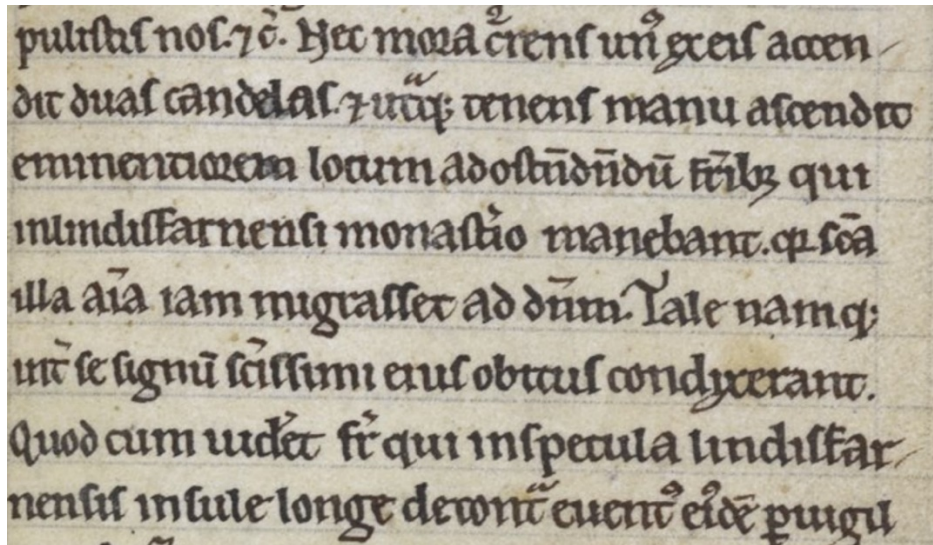 pulistis nos. ⁊ c̄. Hec mora c̃rens un᷒ ex eis accen
dit duas candelas. ⁊ utᷓq; tenens manu ascendit
eminentiorem locum ad ostn̄dn̄dū fr̄ib; qui
in lindisfarnensi monast̾io manebant. qd̵ sc̄a
illa aīa iam migrasset ad dn̄m. Tale namq;
int̾ se signū sc̄issimi eius obitus condixerant.
Quod cum uid̾et fr̄ qui in specula lindisfar
nensis insule longe de contᷓ euent᷒ ei᷒dē ꝑuigil